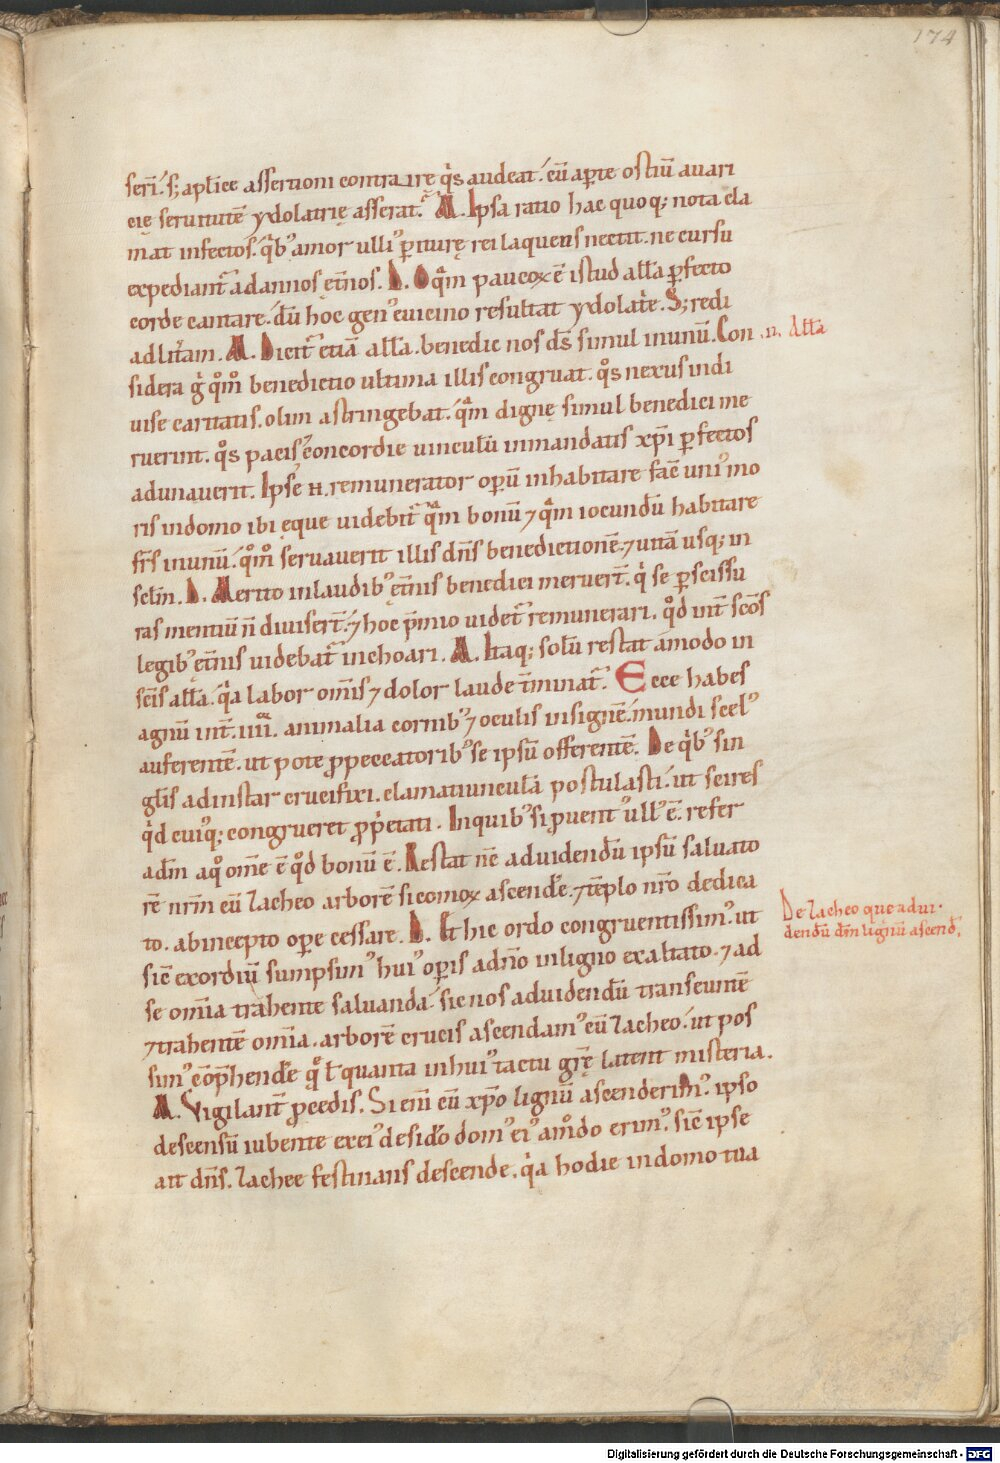 174
serī. s; aplice assertioni contra irę q̇s audeat. cū aꝑte ostiū auari
cię seruitutē ydolatrię asserat. A. Ipsa ratio hac quoq; nota cla
mat infectos. q̇b' amor ulli' ꝑiturę rei laqueus nectit. ne cursu
expediant̄ ad annos etn̄os. D. O q̄m paucoꝝ ē istud all̄a ꝑfecto
corde cantare. dū hoc gen' euicino resultat ydolat̄e. S; redi
ad lit̄am. A. Dicit̄ etiā all̄a. benedic nos ds̄ simul inunū. Con
.ii. All̄a
sidera ġ qm̊ benedictio ultima illis congruat. q̊s nexus indi
uise caritatis. olim astringebat. q̄m dignę simul benedici me
ruerint. q̊s pacis ⁊concordie uinculū inmandatis xp̄i ꝑfectos
adunauerit. Ipse n. remunerator oꝑū inhabitare facē uni' mo
ris indomo ibi ęque uidebit̄ q̄m bonū ⁊ q̄m iocundū habitare
fr̄s inunū. qm̊ seruauerit illis dn̄s benedictionē. ⁊ uitā usq; in
sclm̄. D. Merito inlaudib' ęt̄nis benedici meruert̄. q̇ se ꝑ scissu
ras mentiū n̄ diuisert̄. ⁊ hoc p̄mio uidet̄ remunerari. q̊d int̄ sc̄os
legib' ęt̄nis uidebat̄ inchoari. A. Itaq; solū restat ámodo in
sc̄is all̄a. q̇a labor om̄is ⁊ dolor laude t̄minat̄. Ecce habes
agnū int̄ .iiii. animalia cornib' ⁊ oculis insignē. mundi scel'
auferentē. ut pote ꝓpeccatorib' se ipsū offerentē. De q̇b' sin
glis adinstar crucifixi. clamatiunculā postulasti. ut scires
q̇d cuiq; congrueret ꝓp̄etati. In quib' si ꝓuent' ull' ē. refer
adm̄ aq̊ om̄e ē q̊d bonū ē. Restat nē aduidendū ipsū saluato
rē nr̄m cū Zacheo arborē sicomoꝝ ascende. ⁊ tēplo nr̄o dedica
to. abincepto oꝑe cessare. D. Et hic ordo congruentissim'. ut
De Zacheo que adui.
dendū dm̄ lignū ascend̄.
sic̄ exordiū sumpsim' hui' oꝑis adn̄o inligno exaltato. ⁊ ad
se om̄ia trahente saluanda. sic nos aduidendū transeuntē
⁊trahentē om̄ia. arborē crucis ascendam' cū Zacheo. ut pos
sim' cōp̄hende q̊ t̄ quanta inhui' tactu gr̄ę latent misteria.
A. Vigilant̄ ꝓcedis. Si eni cū xp̄o lignū ascenderim'. ipso
descensū iubente exei' desid̄o dom' ei' am̊do erim'. sic̄ ipse
ait dn̄s. Zachee festinans descende. q̇a hodie indomo tua
Digitalisierung gefördert durch die Deutsche Forschungsgemeinschaft - DFG